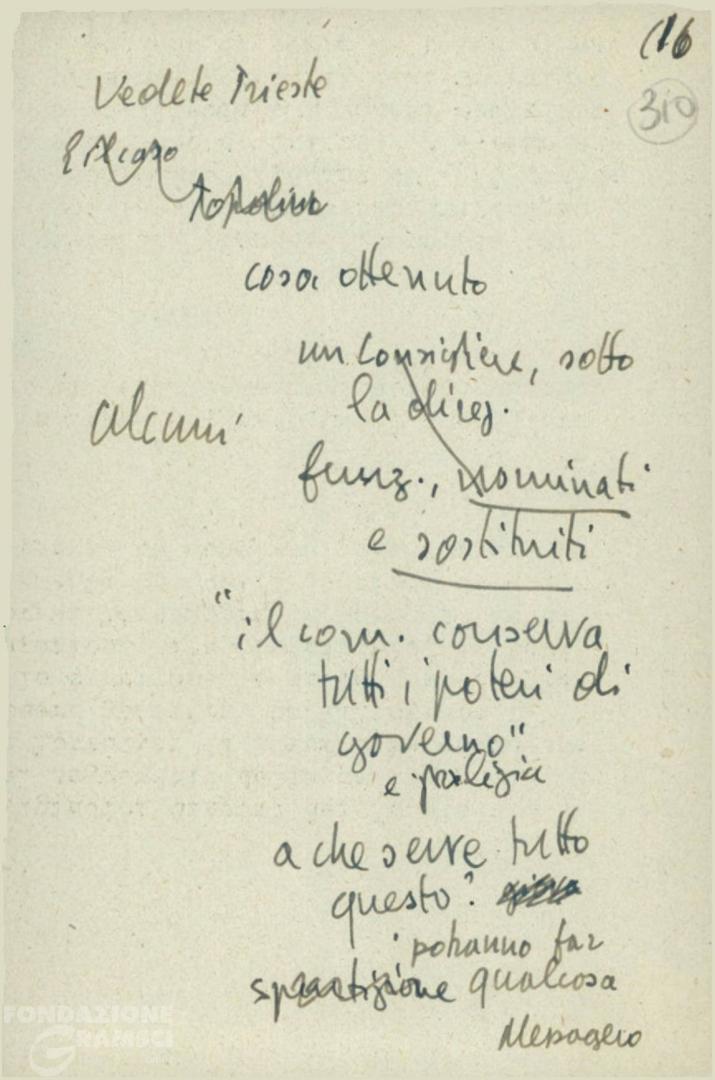 (16
310
Vedete Trieste
E il caso
Topolino
cosa ottenuto
un Consigliere, sotto
la direz.
alcuni
funz., nominati
e sostituiti
"il com. conserva
tutti i poteri di
governo"
e polizia
a che serve tutto
questo?
potranno far
spartizione qualcosa
Messaggero
FONDAZIONE
GRAMSCI